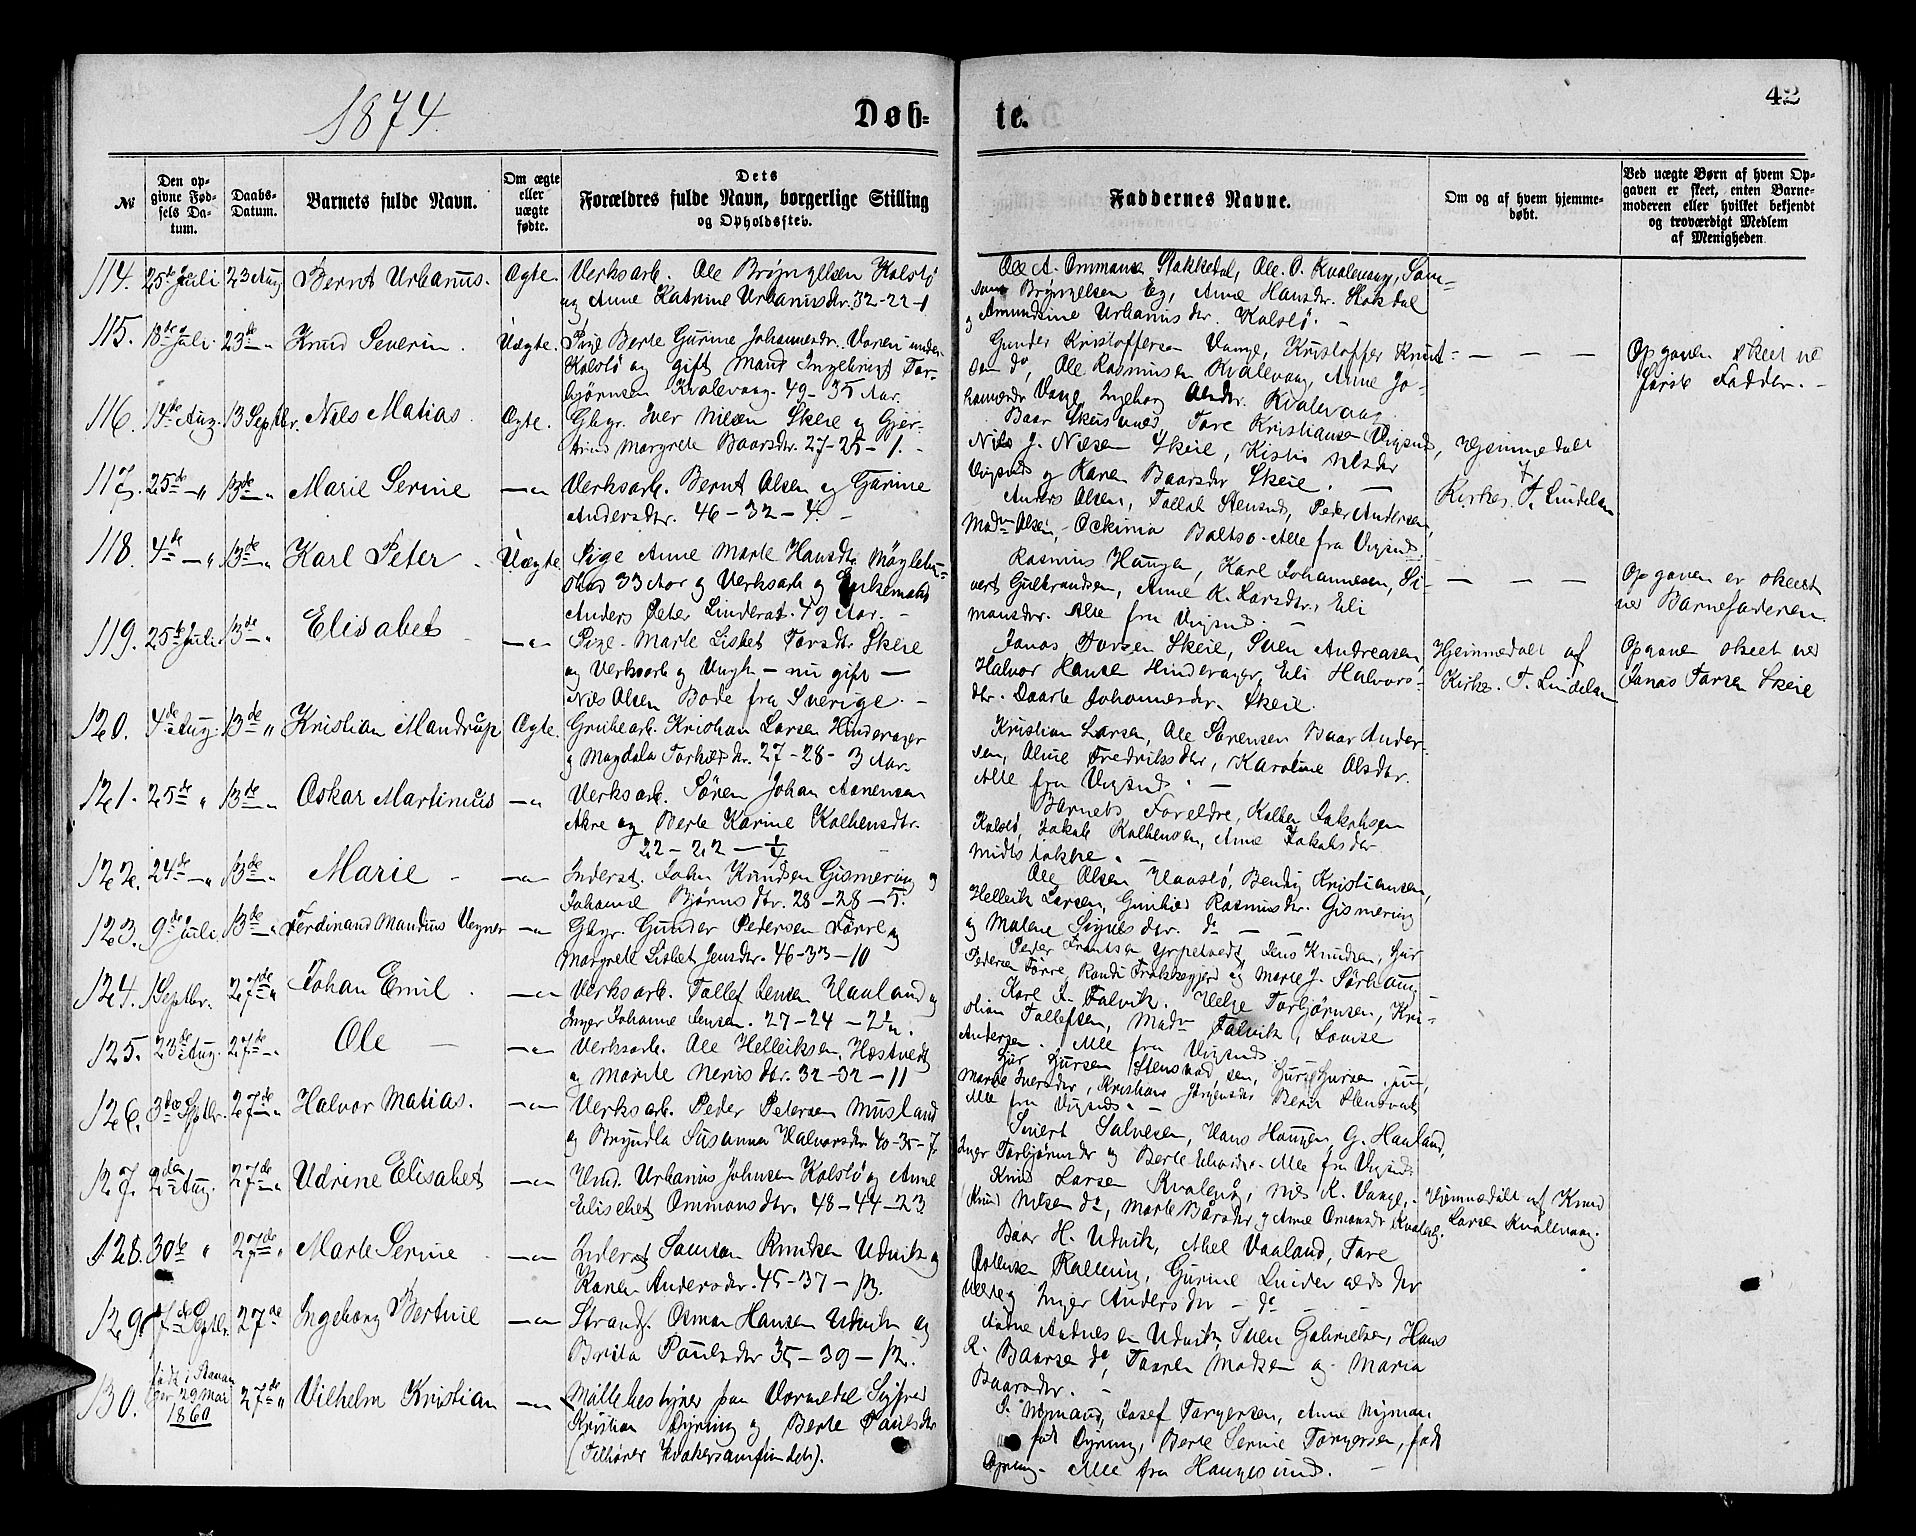 1874.
Døb=
te.
42
№
Den opgivne Fødsels Datum.
Daabs-Datum.
Barnets fulde Navn.
Om ægte eller uægte fødte.
Dets
Forældres fulde Navn, borgerlige Stilling
og Opholdssted.
Faddernes Navne.
Om og af hvem hjemmedøbt.
Ved uægte Børn af hvem Opgaven er skeet, enten Barnemoderen eller hvilket bekjendt og troværdigt Medlem af Menigheden
114. 25de Juli 23 Aug Bernt Urbanus. Ægte. Verksarb. Ole Brÿngelsen Kolstø
og Anne Katrine Urbanusdtr. 32-22-1
Ole A. Ommansen Stakkedal, Ole O. Kvalevaag, Sam-
son Brÿngelsen Eg, Anne Hansdtr. Stokdal
og Amundine Urbanusdtr. Kolstø. -
115. 18de Juli 23de -"- Knud Severin. Uægte. Pige Berte Gurine Johannesdtr. Vorren under
Kolstø og gift Mand Ingebrigt Tor-
bjørnsen Kvalevaag. 49-35 Aar.
Gunder Kristoffersen Vange, Kristoffer Knut-
sen do, Ole Rasmusen Kvalevaag, Anne Jo-
hannesdtr Vange, Ingeborg Olsdtr. Kvalevaag
Opgaven skeet ved
første Fadder. -
116. 14de Aug. 13 Septbr. Nils Matias. Ægte. Gbgr. Iver Nilsen Skeie og Gjer-
trud Margrete Baarsdtr. 27-25-1. -
Baar Skeisvold, Tore Kristiansen Vigsnæs,
Nils J. Nilsen Skeie, Kisti Nilsdtr
Vigsnæs og Karen Baarsdtr Skeie. -
Hjemmedøbt
af
Kirkes. T. Lindeland
117. 25de -"- 13de -"- Marie Serine -"- Verksarb. Bernt Olsen og Gurine
Andersdtr. 46-32-4. -
Anders Olsen, Tallak Stensnæs, Peder Andersen,
Madm Olsen, Alle fra Vigsnæs.
118. 4de -"- 13de -"- Karl Peter. Uægte Pige Anne Marte Hansdtr. Møglebu-
stad 33 Aar og Verksarb og Enkemand
Anders Peter Linderat. 49 Aar. -
Rasmus Haugen, Karl Johannesen, Si-
vert Gulbrandsen, Anne K. Larsdtr., Eli
Mansdtr. Alle fra Vigsnæs. -
Opgaven er skeet
ved Barnefaderen
119. 25de Juli. 13de -"- Elisabet -"- Pige Marte Lisbet Torsdtr Skeie
og Verksarb og Ungk - nu gift -
Nils Olsen Bode fra Sverige. -
Jonas Torsen Skeie, Sven Andreasen,
Halvor Hansen Hinderager, Eli Halvors-
dtr. Daarte Johannesdtr. Skeie.
Hjemmedøbt af
Kirkes. T. Lindeland
Opgaven skeet ved
Jonas Torsen Skeie
120. 4de Aug. 13de " Kristian Mandrup Ægte. Grubearb. Kristian Larsen Hinderager
og Magdala Torkildsdtr. 27-28-3 Aar.
Kristian Larsen, Ole Sørensen Baar Ander-
sen, Aline Fredriksdtr, Karoline Olsdtr.
Alle fra Vigsnæs. -
121. 25de " 13de -"- Oskar Martinius -"- Verksarb. Søren Johan Aanensen
Akre og Berte Karine Kolbensdtr.
22-22-1/4
Barnets Forældre, Kolben Jakobsen
Kolstø, Jakob Kolbensen, Anne Jakobsdtr
Midtstokke. -
122. 24de -"- 13de -"- Marie -"- Inderst. John Knudsen Gismervig og
Johanne Bjørnsdtr. 28-28-5.
Ole Olsen Haastø, Bendig Kristiansen,
Hellerik Larsen, Gunhild Rasmusdtr. Gismervig
og Malene Signesdtr. do -
123. 9de Juli 13de -"- Ferdinand Mandius Vegner -"- Gbgr. Gunder Pedersen Førre og
Margrete Lisbet Jensdtr. 46-33-10
Peder Frantsen Yrpetvedt, Jens Knudsen, Gur
Pedersen Førre, Randi Frakkagjerd og Marte J. Sørhaug
124. 1 Septbr. 27de " Johan Emil. -"- Verksarb. Tollef Jensen Haaland og
Inger Johanne Jensen. 27-24-2 1/2.
Karl A. Falvik. Helge Torbjørnsen, Kri-
stian Tollefsen, Madm Falvik, Louise
Andersen. Alle fra Vigsnæs.
125. 23de Aug. 27de -"- Ole -"- Verksarb. Ole Helleiksen Hæstvedt
og Marite Nerisdtr. 32-32-11
Gur Gursen Stensvad, sen, Gur Gursen jun,
Marte Iversdtr, Kristians Jørgensdtr Berit Stensvad
Alle fra Vigsnæs. -
126. 3die Septbr. 27de -"- Halvor Matias. -"- Verksarb. Peder Petersen Musland
og Bryndla Susanna Halvorsdtr 40-35-7.
Sivert Salvesen, Hans Haugen, G. Haaland,
Inger Torbjørnsdtr og Berte Edvardsdtr. Alle fra Vigsnæs.
127. 2den Aug. 27de -"- Udrine Elisabet -"- Hmd. Urbanus Johnsen Kolstø og Anne
Elisabet Ommonsdtr. 48-44-23
Knud Larsen Kvalevåg, Nils K. Vange,
Knud Nilsen do, Marte Bårsdtr og Anne Omonsdtr Kvalevåg.
Hjemmedøbt af Knud
Larsen Kvalevaag.
128. 30te " 27de " Marte Serine -"- Inderst Samson Knudsen Udvik og
Karen Andersdtr. 45-37-13.
Baar H. Udvik, Abel Vaaland, Tore
Ralleivig, Gurine Lindersdtr
og Inger Andersdtr - do -
129. 7de Septbr. 27de Ingeborg Bertine -"- Strands. Osmon Hansen Udvik og
Brita Paulsdtr 35-39-12.
Aadne Aadnesen Udvik, Sven Gabrielsen, Hans
R. Baarsen do, Taaren Madsen og Maria
Baarsdtr. -
130. født i Stavan
ger 29 Mai
1860 27de " Vilhelm Kristian -"- Møllebestyrer paa Vormedal Sigfred
Kristian Dyring og Berte Paulsdtr
(Tilhører Kvækersamfundet).
P. Nymand, Josef Torgersen, Anne Nyman,
født Dyring, Berte Serine Torgersen, født
Dyring. Alle fra Haugesund. -